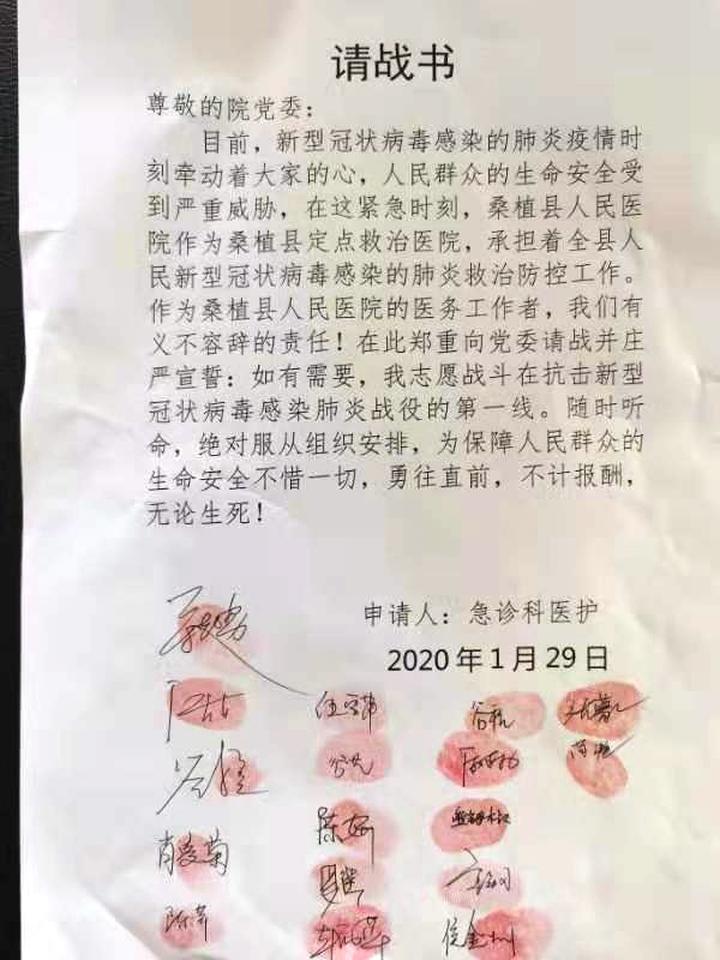 请战书
尊敬的院党委：
目前，新型冠状病毒感染的肺炎疫情时
刻牵动着大家的心，人民群众的生命安全受
到严重威胁，在这紧急时刻，桑植县人民医
院作为桑植县定点救治医院，承担着全县人
民新型冠状病毒感染的肺炎救治防控工作。
作为桑植县人民医院的医务工作者，我们有
义不容辞的责任！在此郑重向党委请战并庄
严宣誓：如有需要，我志愿战斗在抗击新型
冠状病毒感染肺炎战役的第一线。随时听
命，绝对服从组织安排，为保障人民群众的
生命安全不惜一切，勇往直前，不计报酬，
无论生死！
申请人：急诊科医护
2020年1月29日
肖爱菊
陈妍